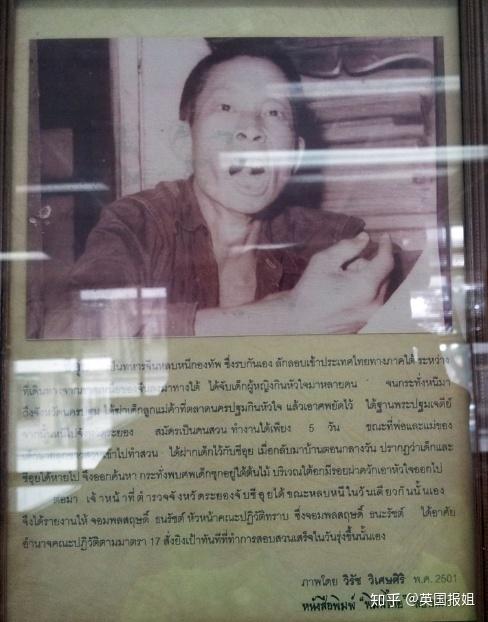 เป็นทหารจีนหลบหนีกองทัพ ซึ่งรบกันเอง ลักลอบเข้าประเทศไทยทางภาคใต้ ระหว่าง
ที่เดินทาง ทางใต้ ได้จับเด็กผู้หญิงกินหัวใจมาหลายคน จนกระทั่งหนีมา
ถึงจังหวัดนครปฐม ได้ฆ่าเด็กลูกแม่ค้าที่ตลาดนครปฐมกินหัวใจ แล้วเอาศพยัดไว้ ใต้ฐานพระปฐมเจดีย์
จากนั้นหนีไป ระยอง สมัครเป็นคนสวน ทำงานได้เพียง 5 วัน ขณะที่พ่อและแม่ของ
เข้าไปทำสวน ได้ฝากเด็กไว้กับซีอุย เมื่อกลับมาบ้านตอนกลางวัน ปรากฏว่าเด็กและ
ซีอุยได้หายไป จึงออกค้นหา กระทั่งพบศพเด็กซุกอยู่ใต้ต้นไม้ บริเวณใต้อกมีรอยผ่าควักเอาหัวใจออกไป
ต่อมา เจ้าหน้าที่ตำรวจจังหวัดระยองจับซีอุยได้ขณะหลบหนีในวันเดียวกันนั้นเอง
จึงได้รายงานให้ จอมพลสฤษดิ์ ธนรัชต์ หัวหน้าคณะปฏิวัติทราบ ซึ่งจอมพลสฤษดิ์ ธนะรัชต์ ได้อาศัย
อำนาจคณะปฏิวัติตามมาตรา 17 สั่งยิงเป้าทันทีที่ทำการสอบสวนเสร็จในวันรุ่งขึ้นนั้นเอง
ภาพโดย วิรัช วิเศษศิริ พ.ศ. 2501
หนังสือพิมพ์
知乎 @英国报姐